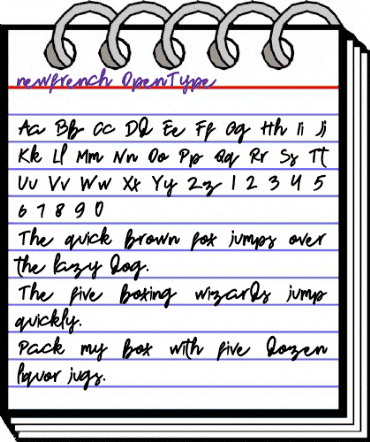 newfrench OpenType
Aa Bb Cc Dd Ee Ff Gg Hh Ii Jj
Kk Ll Mm Nn Oo Pp Qq Rr Ss Tt
Uu Vv Ww Xx Yy Zz 1 2 3 4 5
6 7 8 9 0
The quick brown fox jumps over
the lazy dog.
The five boxing wizards jump
quickly.
Pack my box with five dozen
liquor jugs.